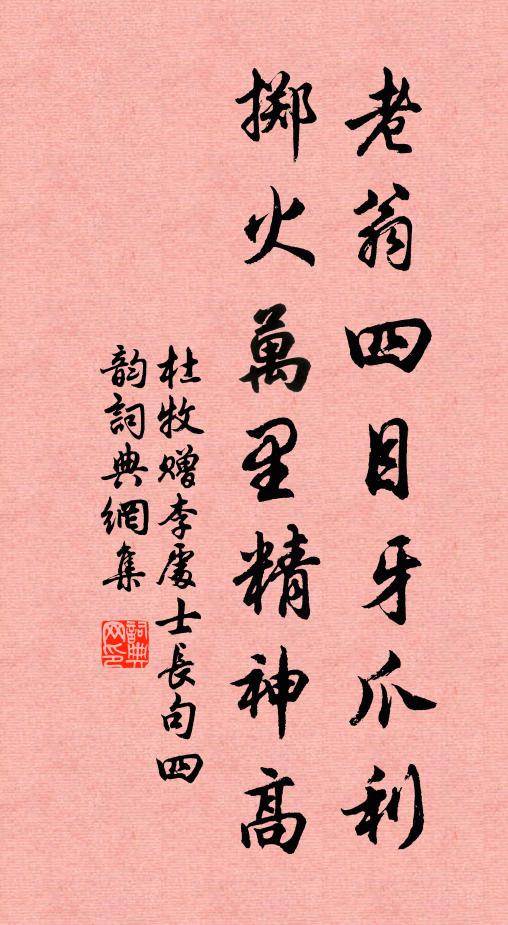 老翁四目牙爪利
掷火萬里精神高
杜牧赠李處士長句四
韵詞典網集
詞典網印